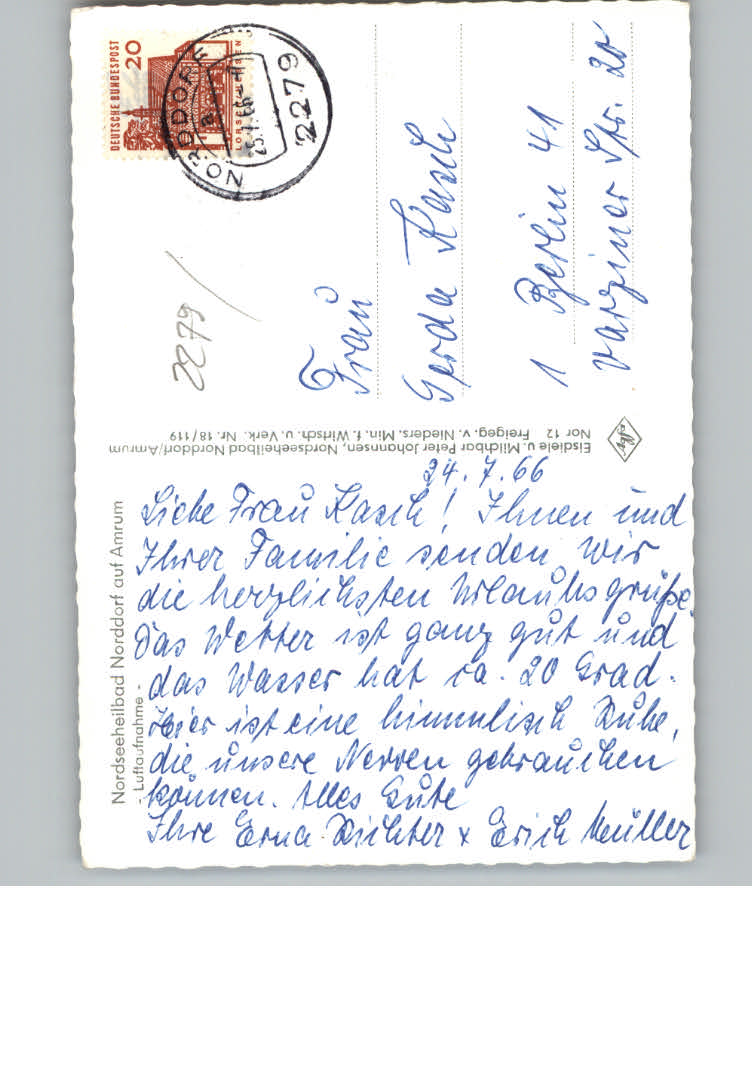 Nordseeheilbad Norddorf auf Amrum
- Luftaufnahme -
24.7.66
Liebe Frau Kasch! Ihnen und
Ihrer Familie senden wir
die herzlichsten Urlaubsgrüße.
Das Wetter ist ganz gut und
das Wasser hat ca. 20 Grad.
Hier ist eine himmlisch Ruhe,
die unsere Nerven gebrauchen
können. Alles Gute
Ihre Erna Richter + Erich Müller
Eisdiele u. Milchbar Peter Johannsen, Nordseeheilbad Norddorf/Amrum
Nor 12 Freigeg. v. Nieders. Min. f. Wirtsch. u. Verk. Nr. 18/119
DEUTSCHE BUNDESPOST
20
LORSCH/HESSEN
NORDDORF
2279
2279
Frau
Gerda Kasch
1 Berlin 41
Varziner Str. 20